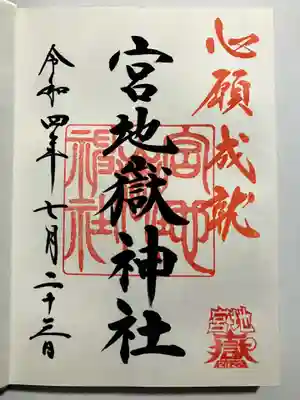 心願成就
宮地嶽神社
令和四年七月二十三日
宮地嶽